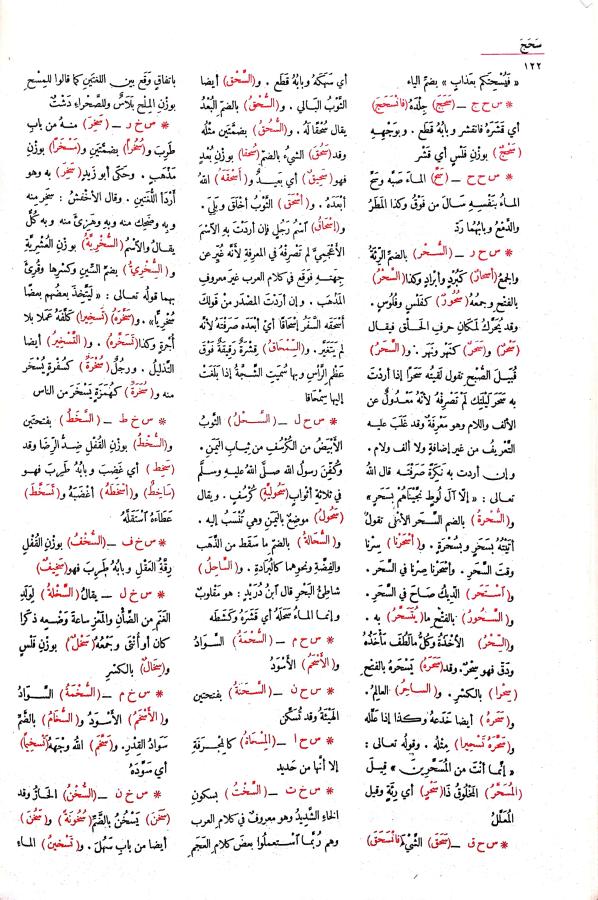 سَحَجَ
١٢٢
« فَيُسْحِتَكم بعَذابٍ » بضمّ الياء
* س ح ج ــ (سَحَجَ) جِلْدَهُ (فانْسَحَجَ)
أي قَشَرَهُ فانقشر وبابُهُ قطع . وبوَجهِهِ
(سَحْجٌ) بوزن فَلْسٍ أي قَشْر
* س ح ح ــ (سَحَّ) الماءَ صَبَّهُ وسَحَّ
الماءُ بنَفْسِهِ سَالَ من فَوقُ وكذا المَطَرُ
والدَّمْعُ وبابُهما رَدّ
* س ح ر ــ (السُّحْر) بالضم الرِّئَةُ
والجمعُ (أسحارٌ) كبُرْدٍ وأبْراد وكذا (السَّحْرُ)
بالفتح وجمعُهُ (سُحُورٌ) كفَلْس وفُلُوس .
وقد يُحَرَّكُ لمَكان حرفِ الحَلْق فيقال
(سَحْرٌ) و(سَحَرٌ) كنَهْر ونَهَر . و(السَّحَرُ)
قُبَيلَ الصُّبْح تقول لَقِيتُه سَحَرًا إذا أردْتَ
به سَحَرَ لَيْلتِك لم تَصْرِفْهُ لأنّه مَعْدولٌ عن
الألف واللام وهو مَعْرِفَةٌ وقد غَلَب عليه
التَّعْريفُ من غيرِ إضافةٍ ولا ألف ولام .
وإن أردت به نَكِرَةً صَرَفْتَه قال الله
تعالى : « إلّا آلَ لُوطٍ نَجَّيْناهُمْ بِسَحَرٍ »
و(السُّحْرةُ) بالضم السَّحَر الأعْلى تقولُ
أتَيْتُه بِسَحَرٍ وبسُحْرَةٍ . و(أسْحَرْنا) سِرْنا
وقتَ السَّحَرِ . وأسْحَرْنا صِرْنا في السَّحَر .
و(استَسْحَر) الدِّيكُ صاحَ في السَّحَرِ .
و(السَّحُورُ) بالفتح ما (يُتَسَحَّرُ) به .
و(السِّحْرُ) الأُخْذَةُ وكُلُّ ما لَطُفَ مَأخَذُهُ
ودَقّ فهو سِحْرٌ. وقد (سَحَرَهُ) يَسْحَرهُ بالفتح
(سِحْرا) بالكسر . و(الساحِرُ) العالِمُ .
و(سَحَرهُ) أيضا خَدَعهُ وكذا إذا عَلَّله
و(سَحَّرهُ تَسْحيرا) مِثْلُه . وقولُه تعالى :
« إنما أنْتَ من المُسَحَّرِين » قِيلَ
(المُسَحَّرُ) المَخْلُوقُ ذا (سَحْرٍ) أي رِئَةٍ وقيل
المُعَلَّلُ
* س ح ق ــ (سَحَقَ) الشَّيْءَ (فانْسَحَقَ)
أي سَهَكَهُ وبابُهُ قَطَع . و(السَّحْق) أيضا
الثَّوْبُ البَالي . و(السُّحْقُ) بالضم البُعْدُ
يقال سُحْقًا لَهُ . و(السُّحُق) بضمّتين مثْلُه
وقد (سَحُقَ) الشيءُ بالضمّ (سُحقا) بوزن بُعْدٍ
فهو (سَحِيقٌ) أي بَعِيدٌ و(أسْحَقَهُ) اللهُ
أبْعَدَهُ . و(أسْحَقَ) الثَّوْبُ أخْلَقَ وبَلِيَ .
و(إسْحاقُ) آسمُ رَجُلٍ فإن أرَدْتَ به الآسمَ
الأعْجميَّ لم تَصْرِفْهُ في المعرِفة لأنّه غُيِّرَ عن
جِهَتِهِ فوَقَع في كلام العرب غيرَ معروفِ
المذْهَب . وإن أردْتَ المَصْدَرَ من قولِكَ
أسْحَقَه السَّفَرُ إسْحاقًا أيْ أبْعَدَهُ صَرَفْتَهُ لأنّه
لم يَتَغَيَّر . و(السِّمْحَاقُ) قِشْرَةٌ رَقِيقَةٌ فَوْقَ
عَظْمِ الرَّأسِ وبها سُمّيَت الشَّجَّةُ إذا بَلَغَتْ
إليها سِمْحاقا
* س ح ل ــ (السَّحْلُ) الثَّوبُ
الأبْيَضُ من الكُرْسُفِ من ثِيابِ اليَمَن .
وكُفِّن رسولُ الله صلَّى اللهُ عليه وسلَّم
في ثلاثةِ أثوابٍ (سَحُوليّةٍ) كُرْسُفٍ . ويقال
(سَحُولُ) موضِعٌ باليَمَن وهي تُنْسَبُ إليه .
و(السُّحَالَةُ) بالضم ما سَقَط من الذّهَب
والفِضَّة ونحوِهما كالبُرَادة . و(السَّاحِلُ)
شاطئُ البَحْر قال ابنُ دُرَيْدٍ : هو مَقْلُوبٌ
وإنما الماءُ سَحَلَهُ أي قَشَرَهُ وكَشَطَه
* س ح م ــ (السُّحْمَةُ) السَّوَادُ
و(الأسْحَمُ) الأسْوَدُ
* س ح ن ــ (السَّحَنَةُ) بفتحتين
الهَيْئَةُ وقد تُسَكَّن
* س ح ا ــ (المِسْحَاةُ) كالمِجْرَفة
إلا أنّها من حَديد
* س خ ت ــ (السَّخْتُ) بسكون
الخاء الشَّدِيدُ وهو معروفٌ في كلام العرب
وهم رُبَّما آستعملُوا بعضَ كلامِ العَجَم
باتفاقٍ وَقَع بين اللغتين كما قالوا للمِسْح
بوَزْن المِلْح بَلاسٌ وللصَّحْراء دَشْتٌ
* س خ ر ــ (سَخِرَ) منه من باب
طَرِبَ و(سُخُرًا) بضمّتين و(مَسْخَرًا) بوزْن
مَذْهَب . وحَكَى أبو زيدٍ (سَخِرَ) به وهو
أرْدَأ اللُّغَتين . وقال الأخْفَشُ : سَخِرَ منه
وبه وضَحِك منه وبه وهَزِئَ منه وبه كُلٌّ
يقالُ والآسْمُ (السُّخْرِيَّةُ) بوزْن العُشْرِيّة
و(السُّخْرِيُّ) بضم السِّينِ وكسْرِها وقُرِئَ
بهما قولُه تعالى : « ليَتَّخِذَ بعضُهم بعضًا
سُخْرِيًّا » . و(سَخَّرَهُ تَسْخِيرا) كَلَّفَهُ عَمَلا بلا
أُجْرَةٍ وكذا (تَسَخَّرَهُ) . و(التَّسْخِيرُ) أيضا
التَّذْليلُ . ورجُلٌ (سُخْرَةٌ) كسُفْرةٍ يُسْخَر
منه و(سُخَرَةٌ) كهُمَزَةٍ يَسْخَر من الناس
* س خ ط ــ (السَّخَطُ) بفتحتين
و(السُّخْطُ) بوزْن القُفْلِ ضِدُّ الرِّضا وقد
(سَخِط) أي غَضِبَ وبابُه طَرِبَ فهو
(ساخِطٌ) و(أسْخَطَهُ) أغْضَبَهُ و(تَسَخَّطَ)
عَطاءَهُ آسْتَقَلَّهُ
* س خ ف ــ (السُّخْفُ) بوزن القُفْلِ
رِقّةُ العَقْلِ وبابُه ظَرُف فهو (سَخِيفٌ)
* س خ ل ــ يقالُ (السَّخْلَةُ) لوَلَدِ
الغَنَمِ من الضَّأنِ والمَعْزِ ساعةَ وَضْعِهِ ذكَرا
كان أو أُنثى وجمعُهُ (سَخْلٌ) بوزْن فَلْسٍ
و(سِخالٌ) بالكسْرِ
* س خ م ــ (السُّخْمَةُ) السَّوَادُ
و(الأسْخَمُ) الأسْوَدُ و(السُّخَامُ) بالضَّمِّ
سَوَادُ القِدْرِ. و(سَخَّمَ) اللهُ وجْهَهُ (تَسْخِيما)
أي سَوَّدَهُ
* س خ ن ــ (السُّخْنُ) الحَارُّ وقد
(سَخَنَ) يَسْخُنُ بالضَّمِّ (سُخُونَةً) و(سَخُنَ)
أيضا من باب سَهُلَ . و(تَسْخِينُ) الماء